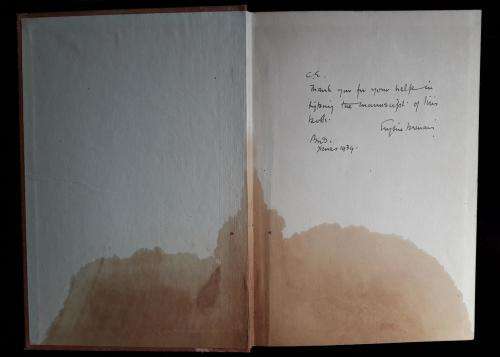 C.S.
Thank you for your help in
typing the manuscript of this
book.
Eugène
Xmas 1939.